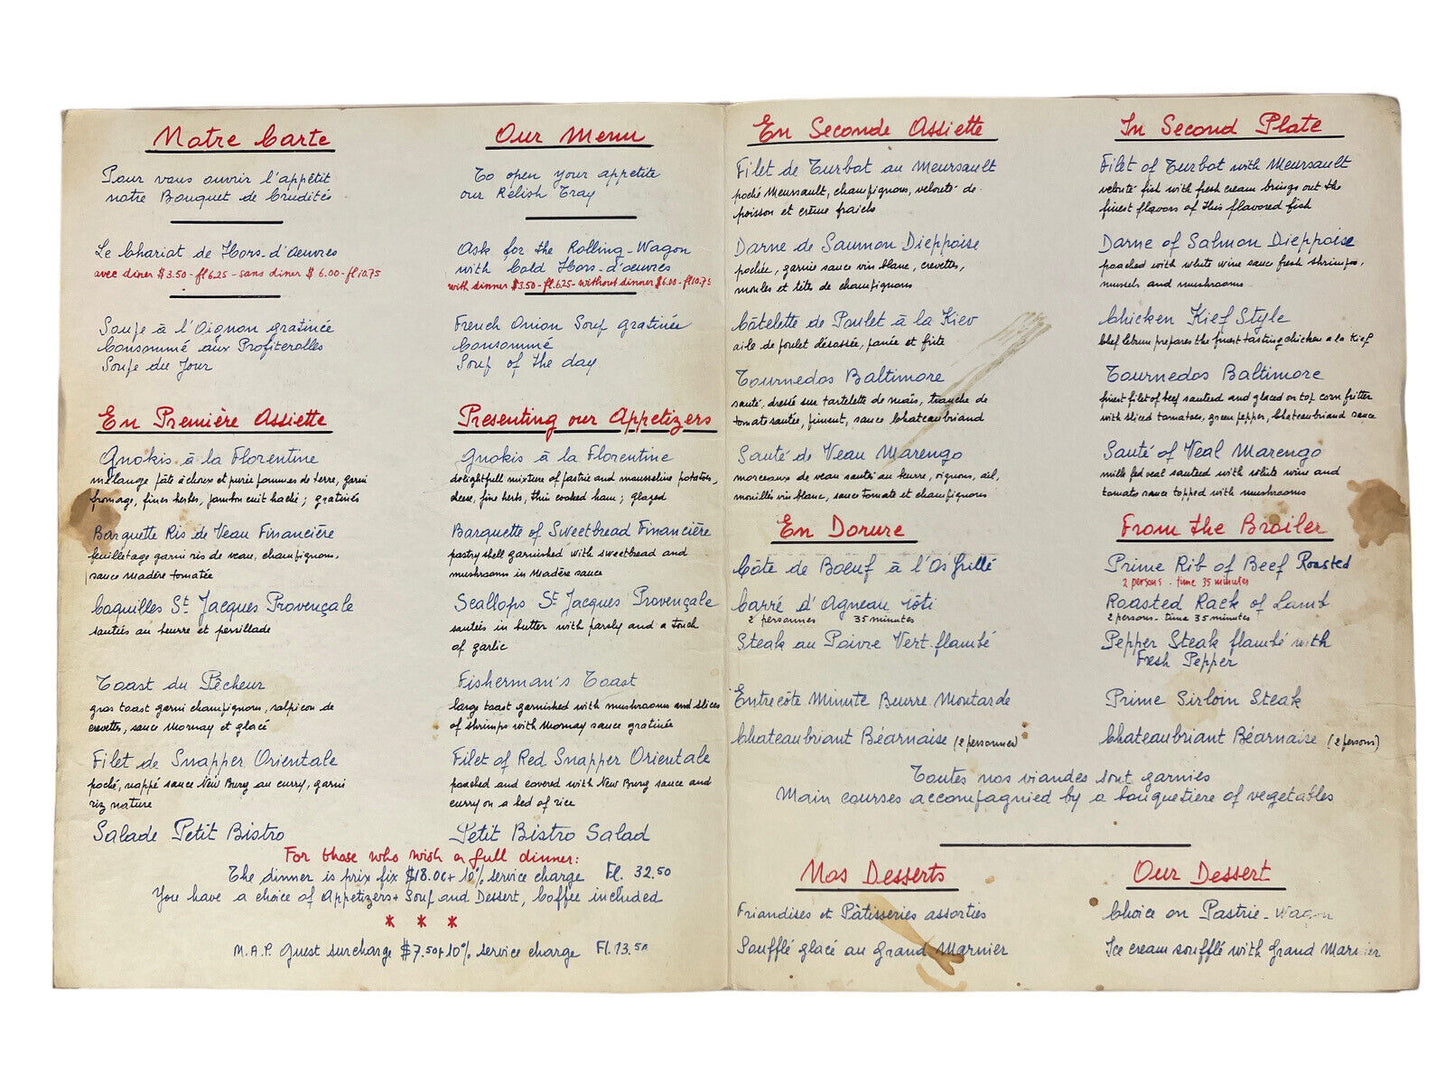 Notre Carte
Pour vous ouvrir l'appétit
notre Bouquet de Crudités
Le Chariot de Hors-d'oeuvres
avec diner $3.50 - fl 6.25 - sans diner $6.00 - fl 10.75
Soupe à l'Oignon gratinée
Consommé aux Profiterolles
Soupe du Jour
En Première Assiette
Gnokis à la Florentine
mélange pâte à choux et purée pommes de terre, garni
fromage, fines herbes, jambon cuit haché; gratinés
Barquette Ris de Veau Financière
feuilletage garni ris de veau, champignons,
sauce Madère tomatée
Coquilles St Jacques Provençale
sautées au beurre et persillade
Toast du Pêcheur
gros toast garni champignons, salpicon de
crevettes, sauce Mornay et glacé
Filet de Snapper Orientale
poché, nappé sauce New Burg au curry, garni
riz nature
Salade Petit Bistro
Our Menu
To open your appetite
our Relish Tray
Ask for the Rolling-Wagon
with Cold Hors-d'oeuvres
with dinner $3.50 - fl.6.25 - without dinner $6.00 - fl 10.75
French Onion Soup gratinée
Consommé
Soup of the day
Presenting our Appetizers
Gnokis à la Florentine
delightfull mixture of pastrie and mousseline potatoes,
cheese, fine herbs, thin cooked ham; glazed
Barquette of Sweetbread Financière
pastry shell garnished with sweetbread and
mushrooms in Madère sauce
Scallops St Jacques Provençale
sautées in butter with parsly and a touch
of garlic
Fisherman's Toast
large toast garnished with mushrooms and slices
of shrimps with Mornay sauce gratinée
Filet of Red Snapper Orientale
poached and covered with New Burg sauce and
curry on a bed of rice
Petit Bistro Salad
For those who wish a full dinner:
The dinner is prix fix $18.00+ 10% service charge Fl. 32.50
You have a choice of Appetizers + Soup and Dessert, Coffee included
* * *
M.A.P. Guest surcharge $7.50+10% service charge Fl. 13.50
En Seconde Assiette
Filet de Turbot au Meursault
poché Meursault, champignons, velouté de
poisson et crème fraiche
Darne de Saumon Dieppoise
pochée, garnie sauce vin blanc, crevettes,
moules et têtes de champignons
Côtelette de Poulet à la Kiev
aile de poulet désossée, panée et frite
Tournedos Baltimore
sauté, dressé sur tartelette de maïs, tranche de
tomate sautée, piment, sauce Chateaubriand
Sauté de Veau Marengo
morceaux de veau sauté au beurre, oignons, ail,
mouillés vin blanc, sauce tomate et champignons
En Dorure
Côte de Boeuf à l'Os Grillé
Carré d'Agneau rôti
2 personnes 35 minutes
Steak au Poivre Vert flambé
Entrecôte Minute Beurre Moutarde
Chateaubriant Béarnaise (2 personnes)
In Second Plate
Filet of Turbot with Meursault
velouté fish with fresh cream brings out the
finest flavors of this flavored fish
Darne of Salmon Dieppoise
poached with white wine sauce fresh shrimps,
mussels and mushrooms
Chicken Kief Style
Chef prepares the finest tasting chicken a la Kief
Tournedos Baltimore
finest filet of beef sauteed and glaced on top corn fritter
with sliced tomatoes, green pepper, Chateaubriand sauce
Sauté of Veal Marengo
milk fed veal sauteed with white wine and
tomato sauce topped with mushrooms
From the Broiler
Prime Rib of Beef Roasted
2 persons - time 35 minutes
Roasted Rack of Lamb
2 persons - time 35 minutes
Pepper Steak flambé with
Fresh Pepper
Prime Sirloin Steak
Chateaubriant Béarnaise (2 persons)
Toutes nos viandes sont garnies
Main courses accompagnied by a bouquetiere of vegetables
Nos Desserts
Friandises et Pâtisseries assorties
Soufflé glacé au Grand Marnier
Our Dessert
Choice on Pastrie-Wagon
Ice cream soufflé with Grand Marnier